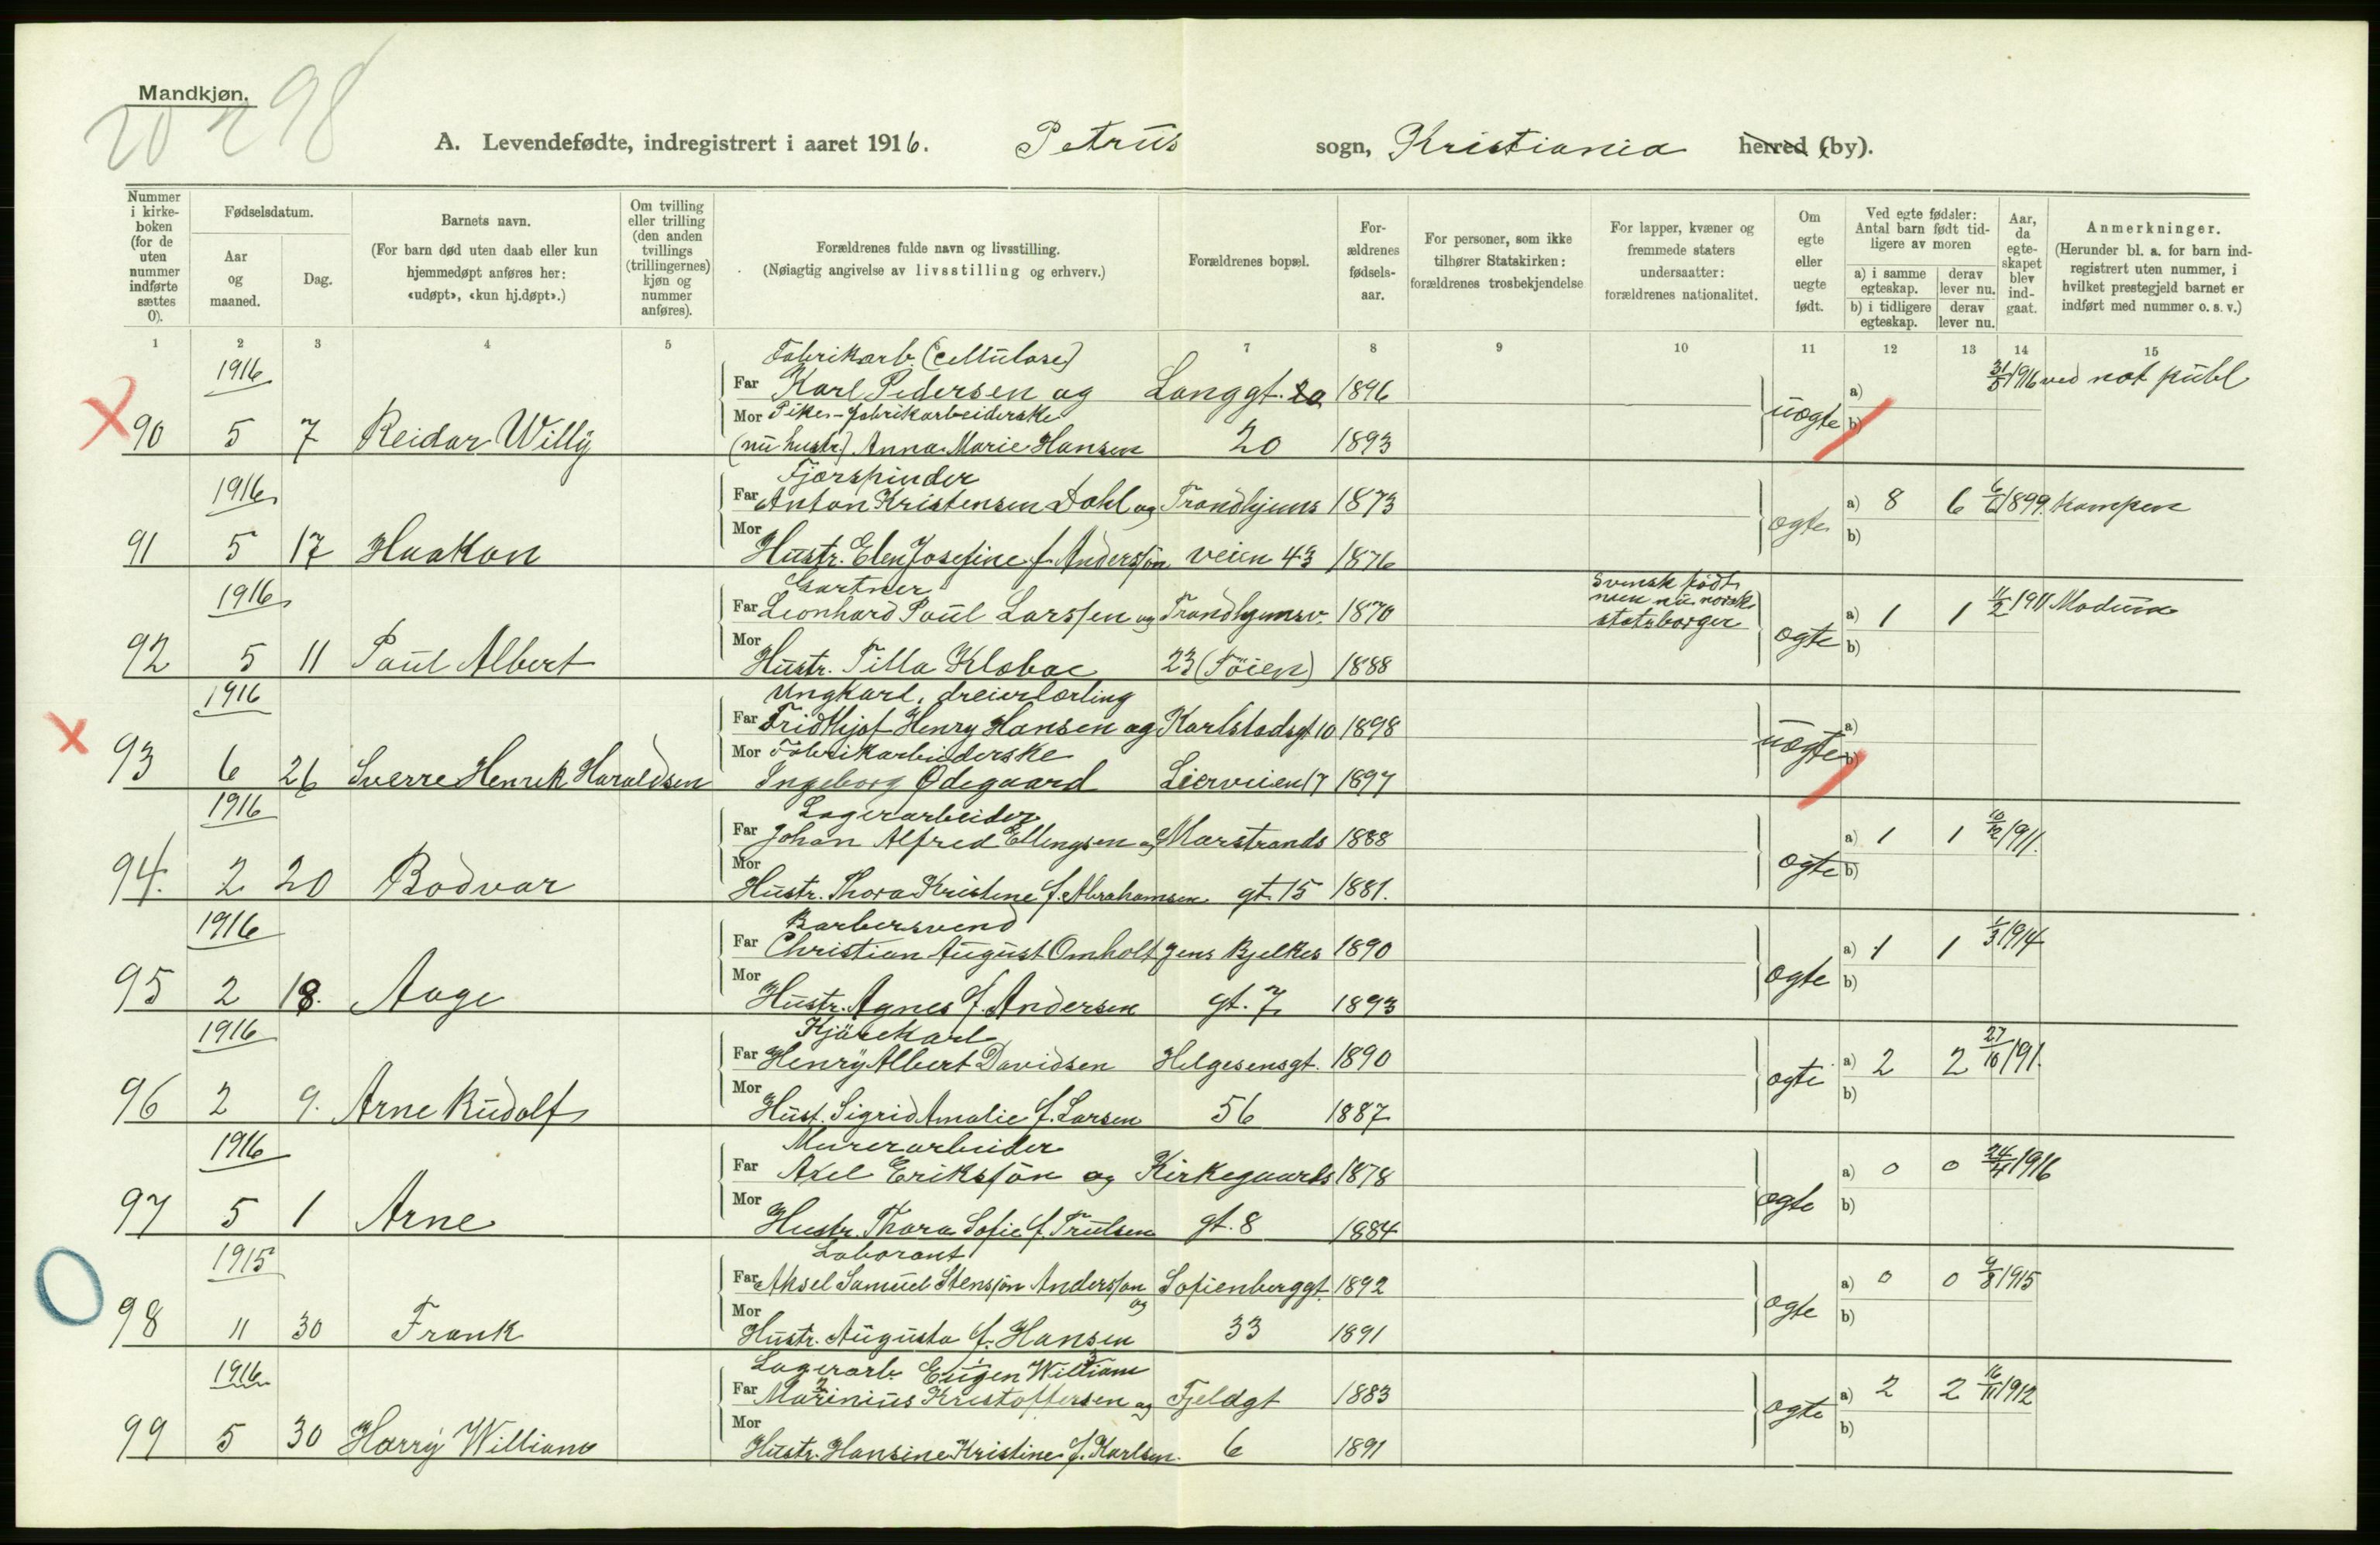 Mandkjøn.
20 298
A. Levendefødte, indregistrert i aaret 1916. Petrus sogn, Kristiania herred (by).
Nummer i kirke-boken (for de uten nummer indførte sættes 0).
Fødselsdatum.
Aar og maaned.
Dag.
Barnets navn.
(For barn død uten daab eller kun hjemmedøpt anføres her: «udøpt», «kun hj.døpt».)
Om tvilling eller trilling (den anden tvillings (trillingernes) kjøn og nummer anføres).
Forældrenes fulde navn og livsstilling.
(Nøiagtig angivelse av livsstilling og erhverv.)
Forældrenes bopæl.
For-ældrenes fødsels-aar.
For personer, som ikke tilhører Statskirken: forældrenes trosbekjendelse
For lapper, kvæner og fremmede staters undersaatter: forældrenes nationalitet.
Om egte eller uegte født.
Ved egte fødsler: Antal barn født tid-ligere av moren
a) i samme egteskap.
derav lever nu.
b) i tidligere egteskap.
derav lever nu.
Aar, da egte-skapet blev ind-gaat.
Anmerkninger.
(Herunder bl. a. for barn ind-registrert uten nummer, i hvilket prestegjeld barnet er indført med nummer o. s. v.)
1 2 3 4 5 7 8 9 10 11 12 13 14 15
1916 Fabrikarb. (Cellulose)
Far Karl Pedersen og Langgt. 20 1896 a) 31/8 1916 ved not publ
Mor Pike - fabrikarbeiderske
90 5 7 Reidar Willy (nu hustr.) Anna Marie Hansen 20 1893 uegte b)
1916 Fjørspinder
Far Anton Kristensen Dahl og Trondhjems 1873 a) 8 6 6/6 1899. Kampen
91 5 17 Haakon Mor Hustr. Elen Josefine f. Andersson veien 43 1876 egte b)
1916 Gartner svensk født men nu norsk statsborger
Far Leonhard Paul Larssen og Trondhjemsv. 1870 a) 1 1 11/2 1911 Modum
92 5 11 Paul Albert Mor Hustr. Tilla Klobac 23 (Töien) 1888 egte b)
1916 Ungkarl, dreierlærling
Far Fridthjof Henry Hansen og Karlstadsgt 10 1898 a)
Mor Fabrikarbeiderske
93 6 26 Sverre Henrik Haraldsen Ingeborg Ødegaard Lierveien 17 1897 uegte b)
1916 Lagerarbeider
Far Johan Alfred Ellengsen og Marstrands 1888 a) 1 1 10/12 1911.
94. 2 20 Bodvar Mor Hustr. Thora Kristine f. Abrahamsen gt. 15 1881. egte b)
1916 Barbersvend
Far Christian August Omholt Jens Bjelkes 1890 a) 1 1 1/3 1914
95 2 18. Aage Mor Hustr. Agnes f. Andersen gt. 7 1893 egte b)
1916 Kjørekarl
Far Henry Albert Davidsen Helgesensgt. 1890 a) 2 2 27/10 191.
96 2 9. Arne Rudolf Mor Hust. Sigrid Amalie f. Larsen 56 1887 egte b)
1916 Murerarbeider
Far Axel Eriksson og Kirkegaards 1878 a) 0 0 24/4 1916
97 5 1 Arne Mor Hustr. Thora Sofie f. Trulsen gt. 8 1884 egte b)
1915 Laborant
Far Aksel Samuel Stensson Andersson og Sofienberggt. 1892 a) 0 0 9/8 1915
98 11 30 Frank Mor Hustr. Augusta f. Hansen 33 1891 egte b)
1916 Lagerarb. Eugen William
Far Marinius Kristoffersen og Fjeldgt 1883 a) 2 2 16/11 1912
99 5 30 Harry William Mor Hustr. Hansine Kristine f. Karlsen. 6 1891 egte b)